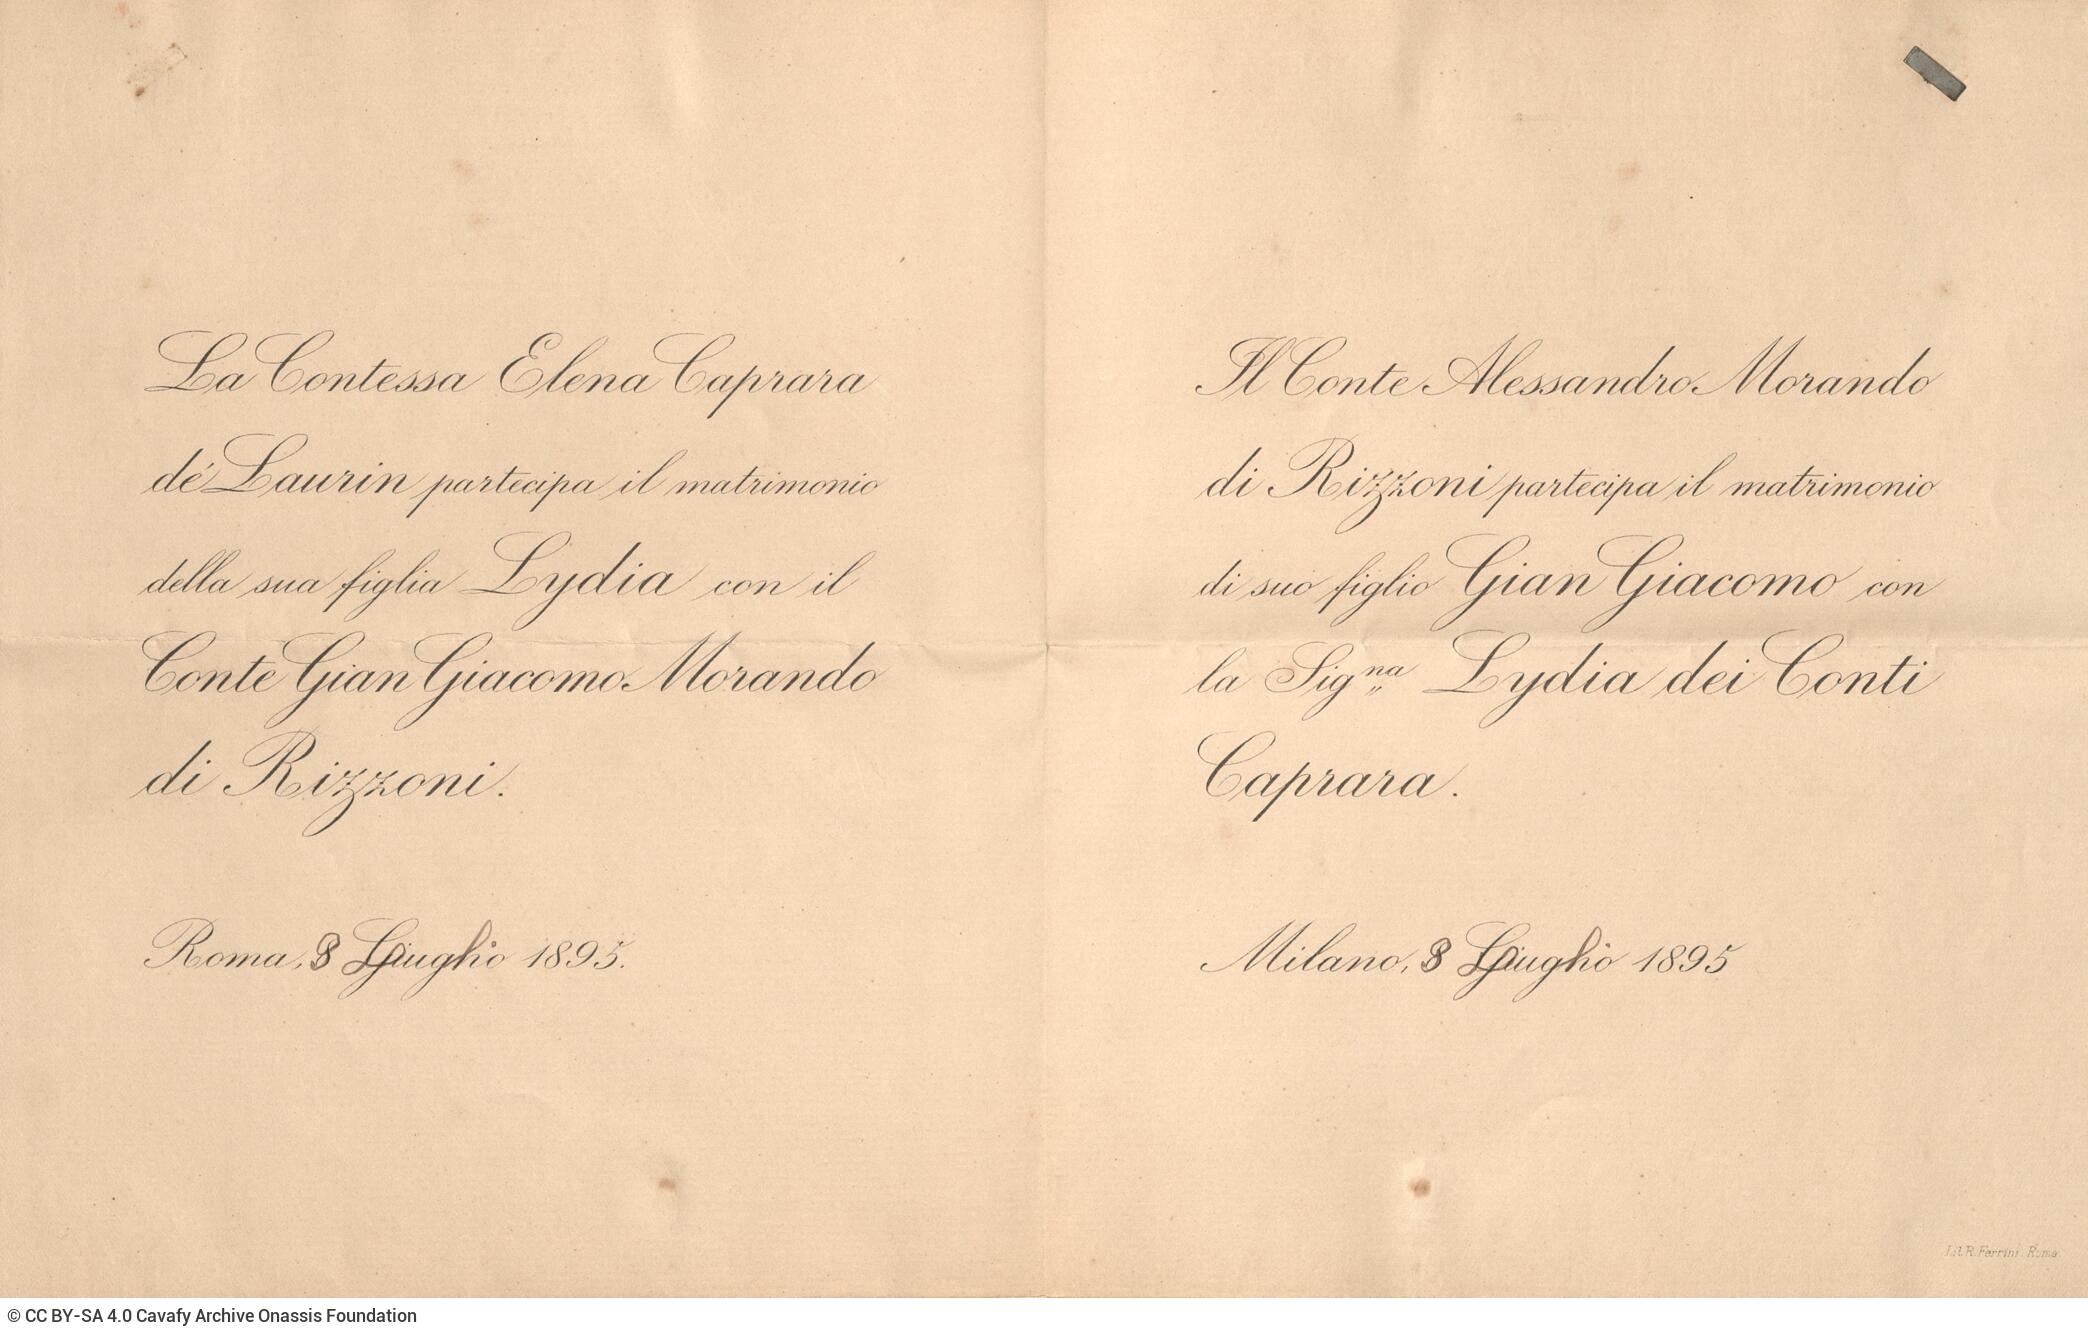 La Contessa Elena Caprara
dé Laurin partecipa il matrimonio
della sua figlia Lydia con il
Conte Gian Giacomo Morando
di Rizzoni.
Roma, 8 Luglio 1895.
Il Conte Alessandro Morando
di Rizzoni partecipa il matrimonio
di suo figlio Gian Giacomo con
la Sig.na Lydia dei Conti
Caprara.
Milano, 8 Luglio 1895
Lit. R. Ferrini. Roma
© CC BY-SA 4.0 Cavafy Archive Onassis Foundation